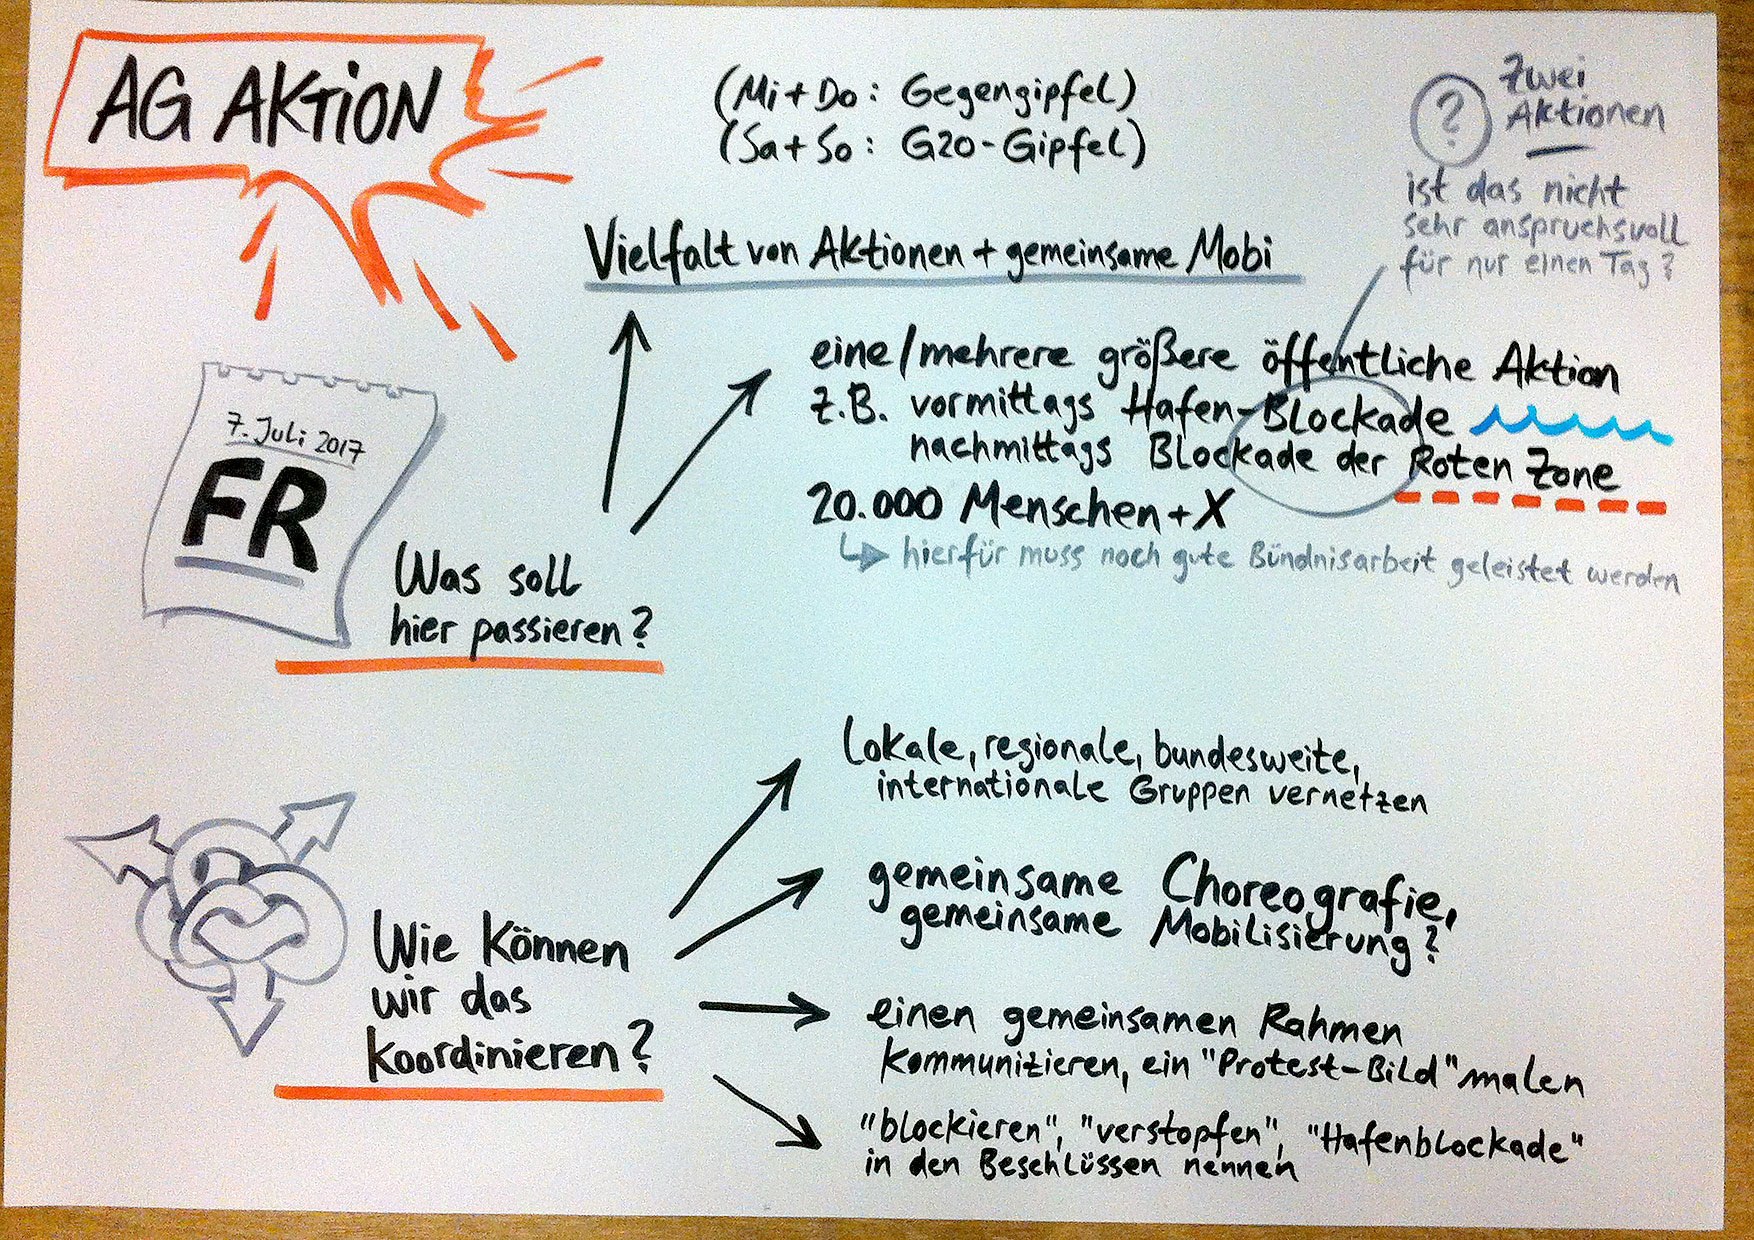 AG AKTiON
(Mi + Do: Gegengipfel)
(Sa + So: G20-Gipfel)
? Zwei
Aktionen
ist das nicht
sehr anspruchsvoll
für nur einen Tag?
Vielfalt von Aktionen + gemeinsame Mobi
eine/mehrere größere öffentliche Aktion
z.B. vormittags Hafen-Blockade
nachmittags Blockade der Roten Zone
20.000 Menschen + X
hierfür muss noch gute Bündnisarbeit geleistet werden
7. Juli 2017
FR
Was soll
hier passieren?
Lokale, regionale, bundesweite,
internationale Gruppen vernetzen
gemeinsame Choreografie,
gemeinsame Mobilisierung?
Wie können
wir das
koordinieren?
einen gemeinsamen Rahmen
kommunizieren, ein "Protest-Bild" malen
"blockieren", "verstopfen", "Hafenblockade"
in den Beschlüssen nennen